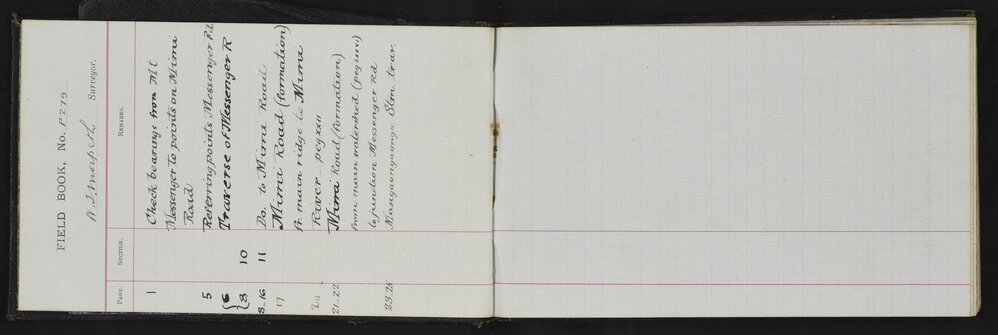 FIELD BOOK, No. P279
Surveyor.
PAGE. SECTION. REMARKS.
1 Check bearings from Mt
Messenger to points on Mimi
Road
5 Referring points Messenger Rd
{6 Traverse of Messenger R
{8 10
8-16 11 Do. to Mimi Road
17 Mimi Road (formation)
fr. main ridge to Mimi
River - peg xxii
21-22 Mimi Road (formation)
from main watershed (peg xxii)
to junction Messenger Rd
23.25 Mangaonga Stm. trav.